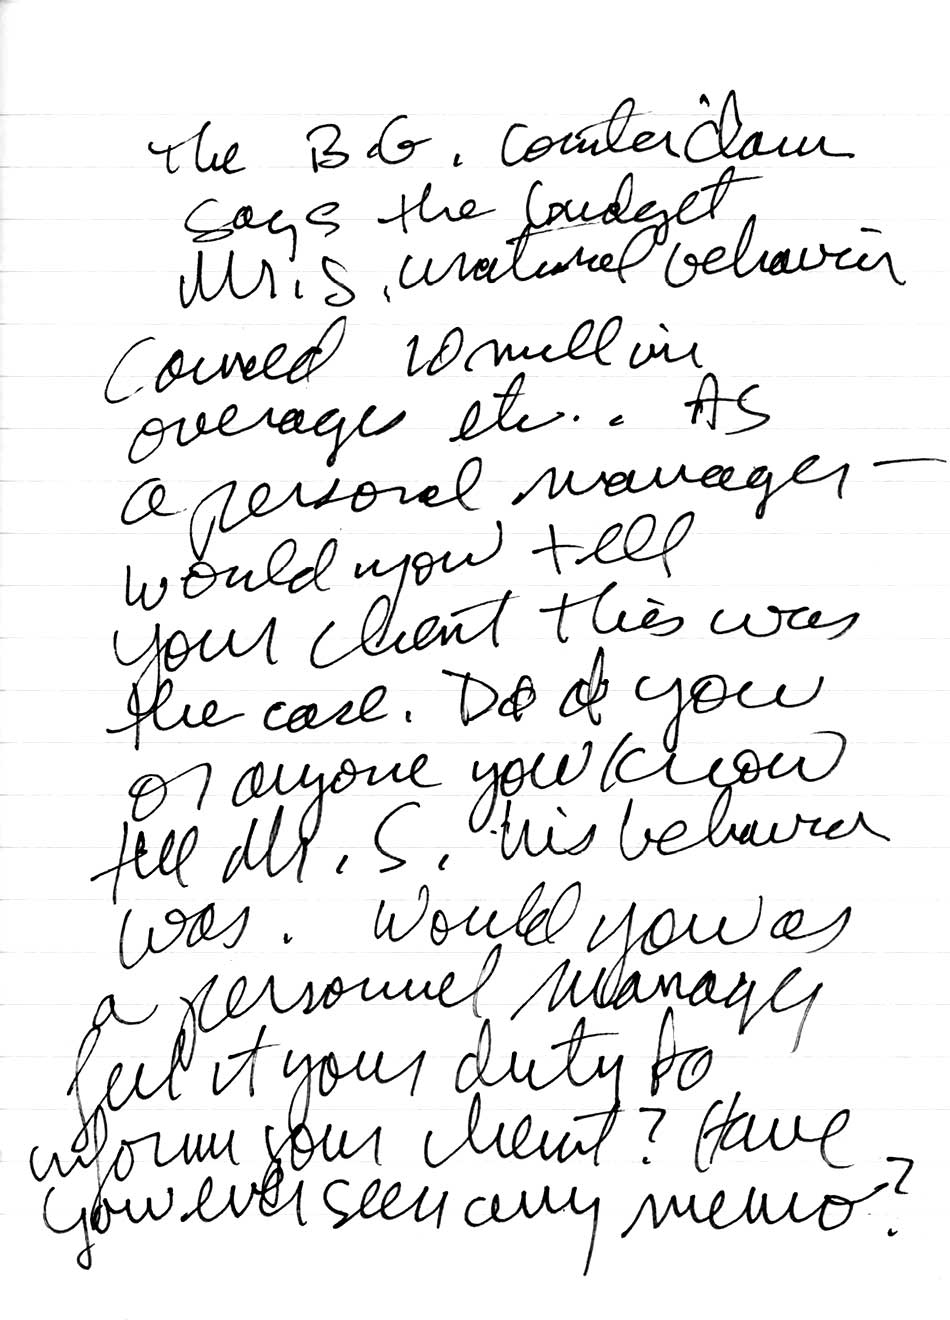 the B.G. counterclaim
says the budget
Mr. S. unatural behavior
10 million
overages etc.. As
a personal manager —
would you tell
your client this was
the case. Do you
or anyone you know
tell Mr. S. his behavior
was. Would you as
a personnel manager
feel it your duty to
inform your client? Have
you ever seen any memo?